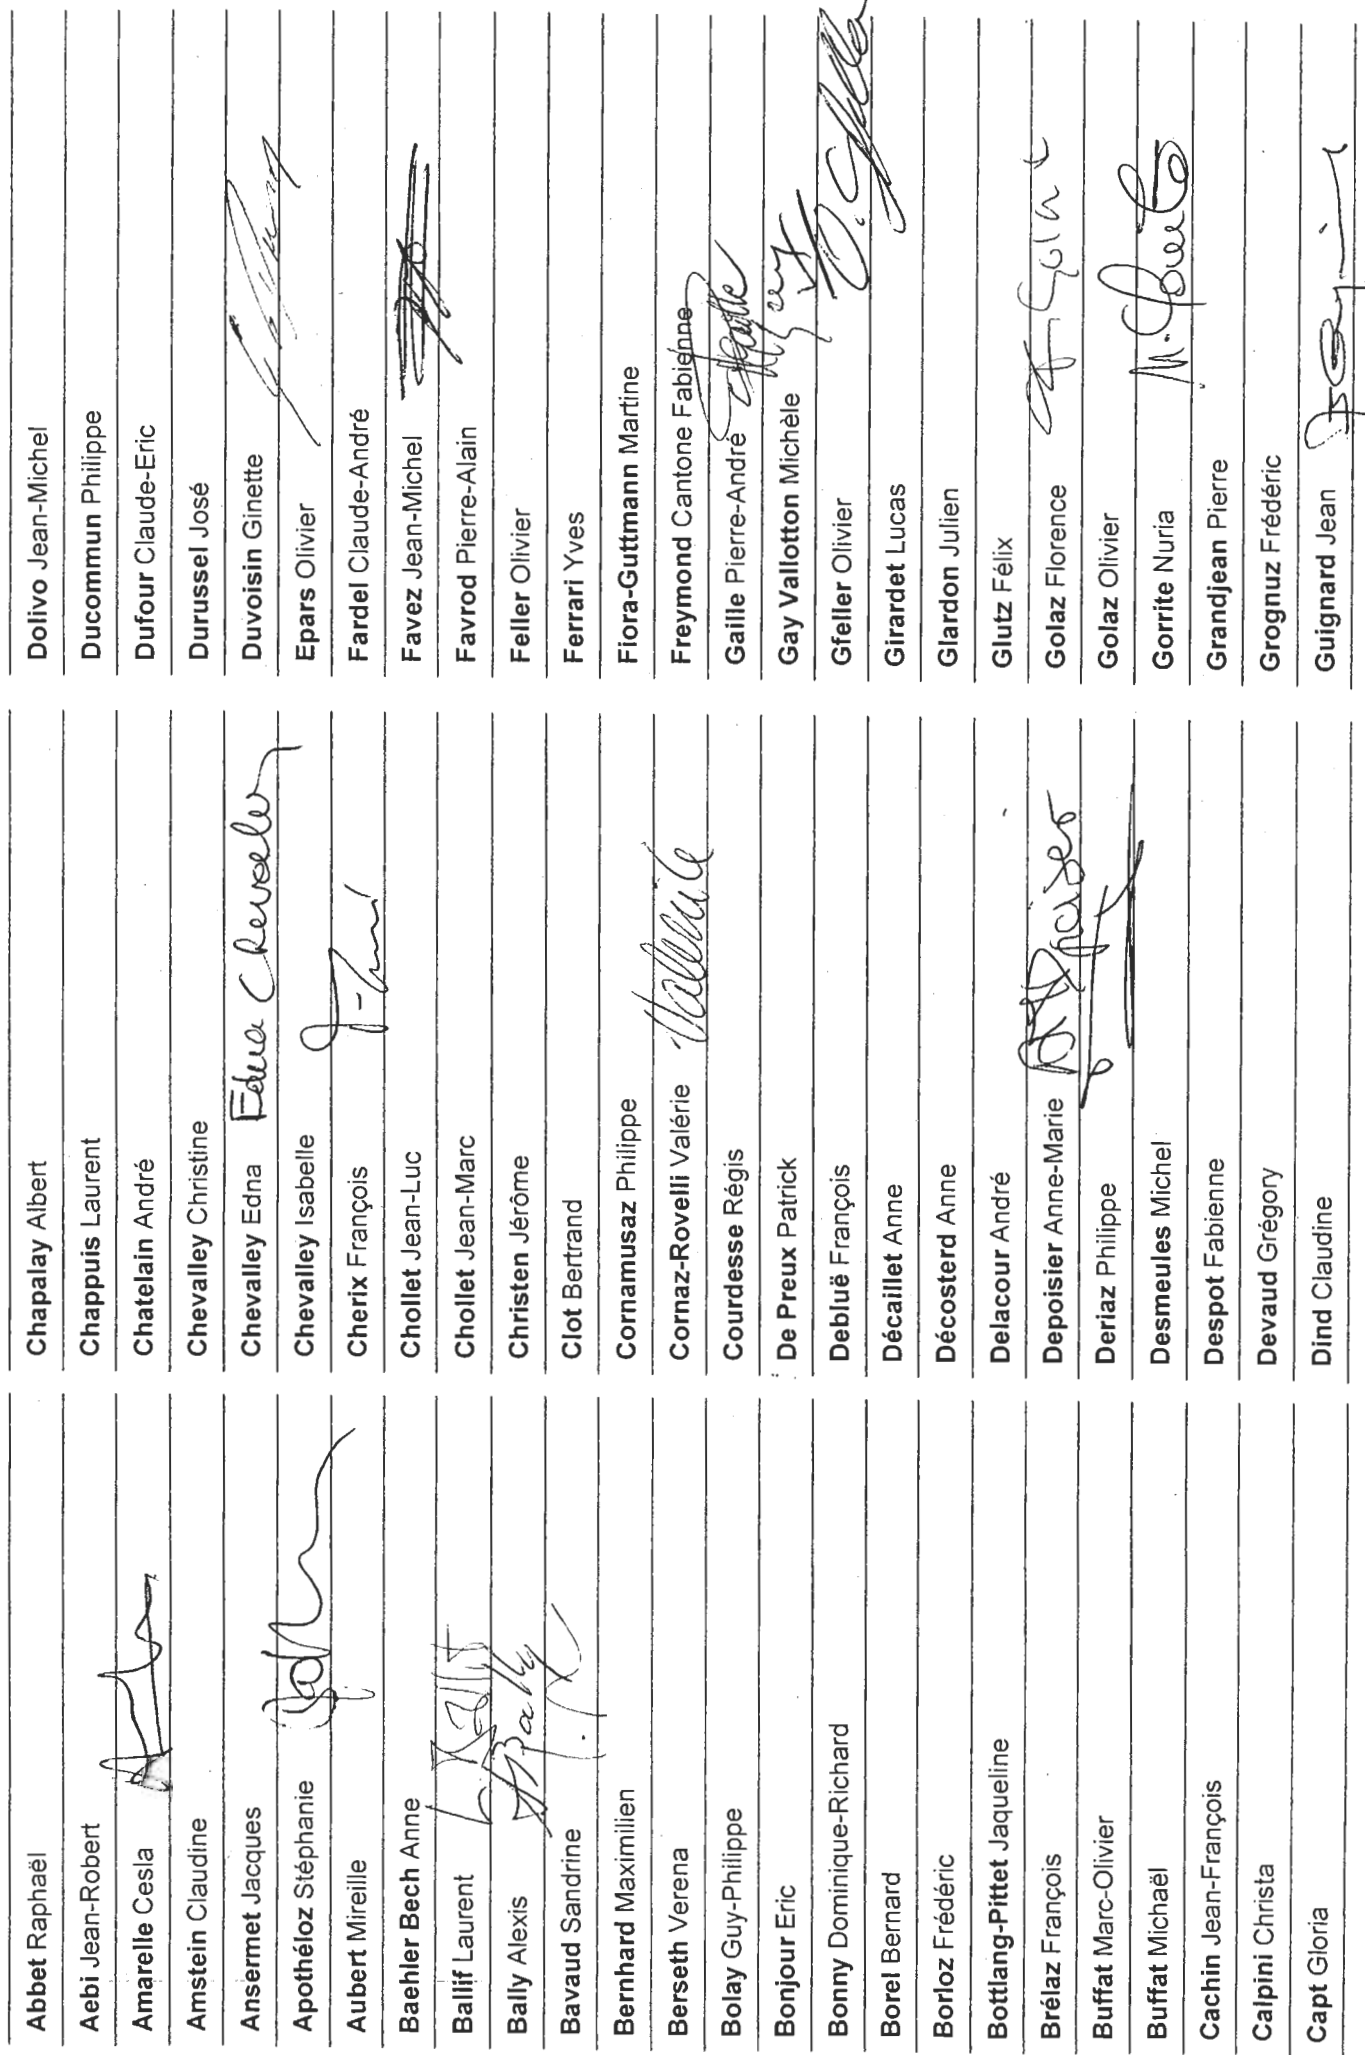 Abbet Raphaël
Aebi Jean-Robert
Amarelle Cesla
Amstein Claudine
Ansermet Jacques
Apothéloz Stéphanie
Aubert Mireille
Baehler Bech Anne
Ballif Laurent
Bally Alexis
Bavaud Sandrine
Bernhard Maximilien
Berseth Verena
Bolay Guy-Philippe
Bonjour Eric
Bonny Dominique-Richard
Borel Bernard
Borloz Frédéric
Bottlang-Pittet Jaqueline
Brélaz François
Buffat Marc-Olivier
Buffat Michaël
Cachin Jean-François
Calpini Christa
Capt Gloria
Chapalay Albert
Chappuis Laurent
Chatelain André
Chevalley Christine
Chevalley Edna Edna
Chevalley Isabelle
Cherix François
Chollet Jean-Luc
Chollet Jean-Marc
Christen Jérôme
Clot Bertrand
Cornamusaz Philippe
Cornaz-Rovelli Valérie
Courdesse Régis
De Preux Patrick
Debluë François
Décaillet Anne
Décosterd Anne
Delacour André
Depoisier Anne-Marie
Deriaz Philippe
Desmeules Michel
Despot Fabienne
Devaud Grégory
Dind Claudine
Dolivo Jean-Michel
Ducommun Philippe
Dufour Claude-Eric
Durussel José
Duvoisin Ginette
Epars Olivier
Fardel Claude-André
Favez Jean-Michel
Favrod Pierre-Alain
Feller Olivier
Ferrari Yves
Fiora-Guttmann Martine
Freymond Cantone Fabienne
Gaille Pierre-André
Gay Vallotton Michèle
Gfeller Olivier
Girardet Lucas
Glardon Julien
Glutz Félix
Golaz Florence
Golaz Olivier
Gorrite Nuria
Grandjean Pierre
Grognuz Frédéric
Guignard Jean